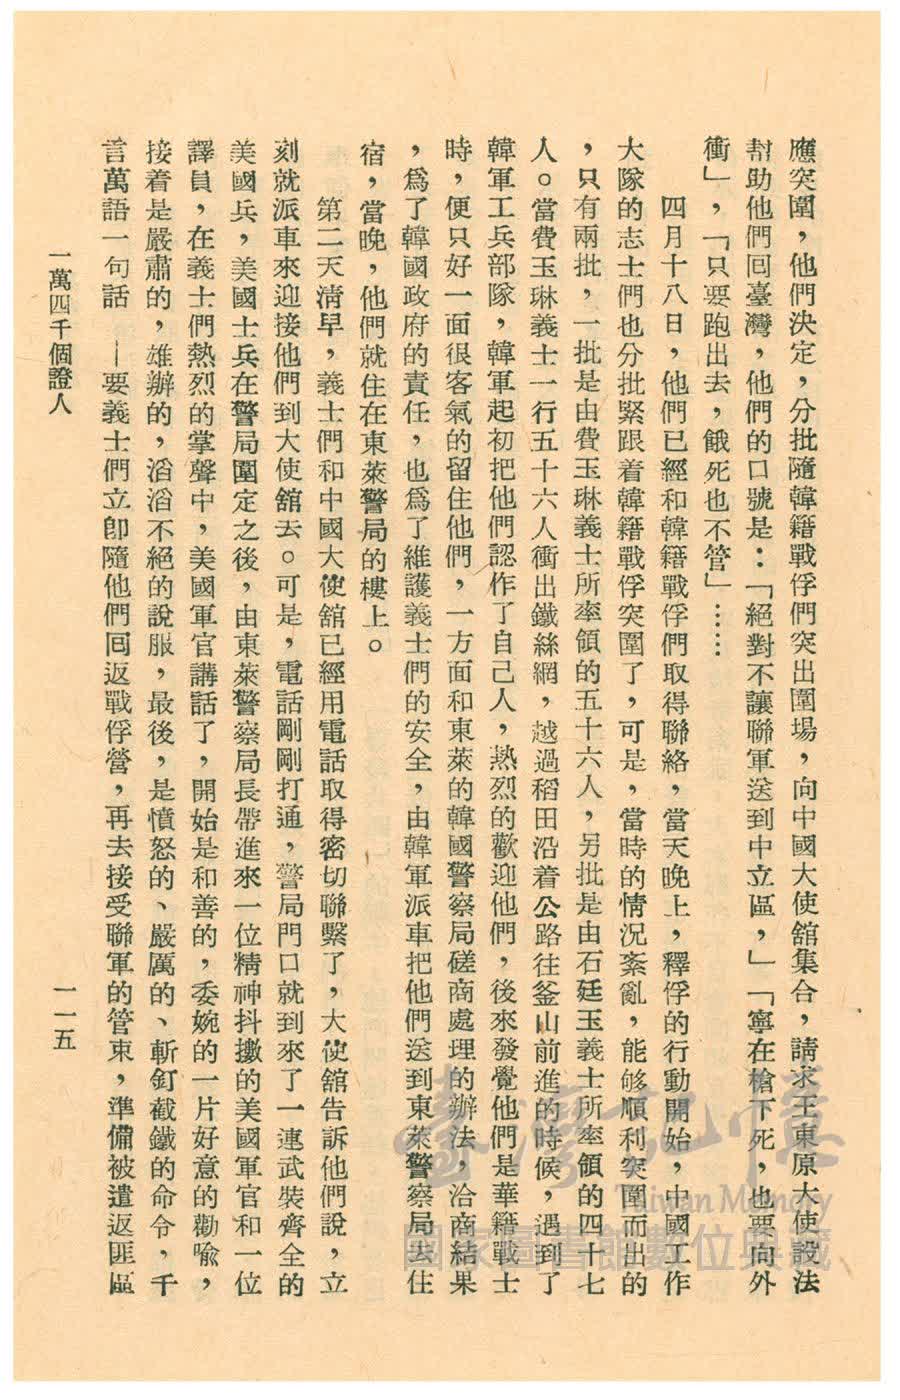 應突圍，他們決定，分批隨韓籍戰俘們突出圍場，向中國大使舘集合，請求王東原大使設法
幇助他們囘臺灣，他們的口號是：「絕對不讓聯軍送到中立區，」「寧在槍下死，也要向外
衝」，「只要跑出去，餓死也不管」……
四月十八日，他們已經和韓籍戰俘們取得聯絡，當天晚上，釋俘的行動開始，中國工作
大隊的志士們也分批緊跟着韓籍戰俘突圍了，可是，當時的情況紊亂，能够順利突圍而出的
，只有兩批，一批是由費玉琳義士所率領的五十六人，另批是由石廷玉義士所率領的四十七
人。當費玉琳義士一行五十六人衝出鐵絲網，越過稻田沿着公路往釜山前進的時候，遇到了
韓軍工兵部隊，韓軍起初把他們認作了自己人，熱烈的歡迎他們，後來發覺他們是華籍戰士
時，便只好一面很客氣的留住他們，一方面和東萊的韓國警察局磋商處理的辦法，洽商結果
，爲了韓國政府的責任，也爲了維護義士們的安全，由韓軍派車把他們送到東萊警察局去住
宿，當晚，他們就住在東萊警局的樓上。
第二天淸早，義士們和中國大使舘已經用電話取得密切聯繫了，大使舘告訴他們說，立
刻就派車來迎接他們到大使舘去。可是，電話剛剛打通，警局門口就到來了一連武裝齊全的
美國兵，美國士兵在警局圍定之後，由東萊警察局長帶進來一位精神抖擻的美國軍官和一位
譯員，在義士們熱烈的掌聲中，美國軍官講話了，開始是和善的，委婉的一片好意的勸喩，
接着是嚴肅的，雄辯的，滔滔不絕的說服，最後，是憤怒的、嚴厲的、斬釘截鐵的命令，千
言萬語一句話——要義士們立卽隨他們囘返戰俘營，再去接受聯軍的管束，準備被遣返匪區
一萬四千個證人
一一五
臺灣記憶
Taiwan Memory
國家圖書館數位典藏